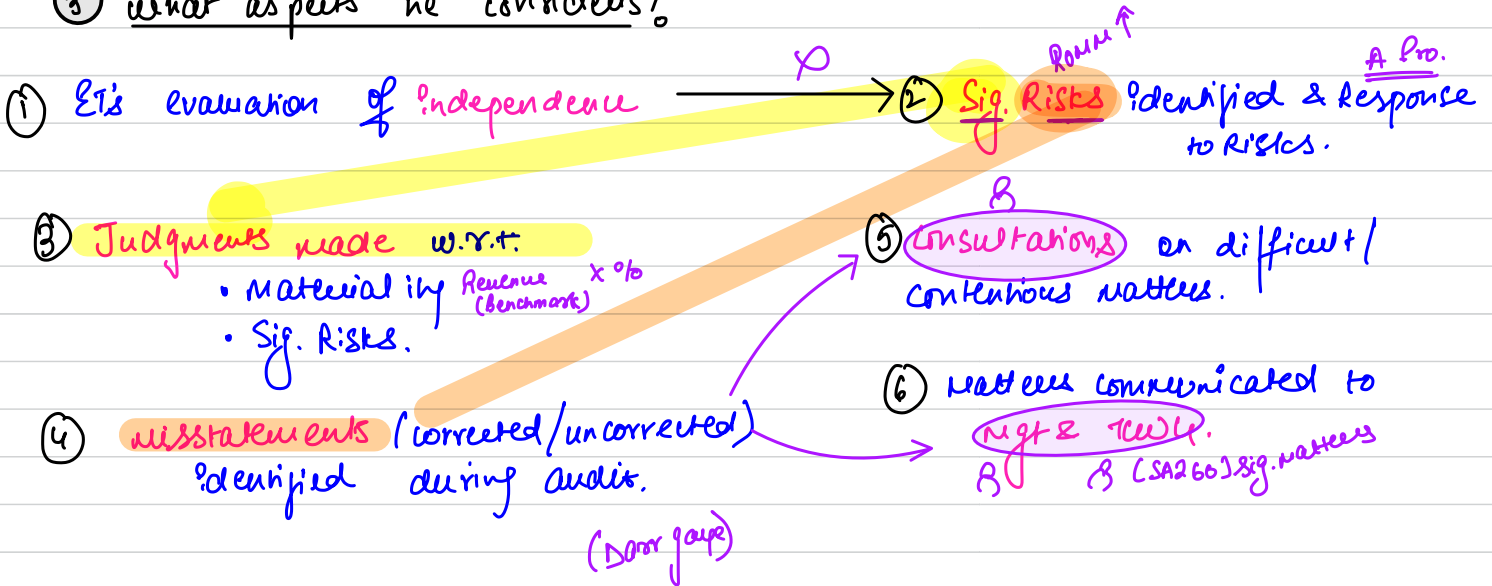 ③ What aspects he considers?
① ET's evaluation of independence → ② Sig. Risks identified & Response
ROMM ↑
A Pro.
to Risks.
③ Judgments made w.r.t.
• Materiality Revenue x %
(Benchmark)
• Sig. Risks.
④ Misstatements (corrected/uncorrected)
identified during audit.
(Darr gaye)
⑤ Consultations on difficult/
contentious matters.
⑥ Matters communicated to
Mgt & TCWG.
[SA260] Sig. matters